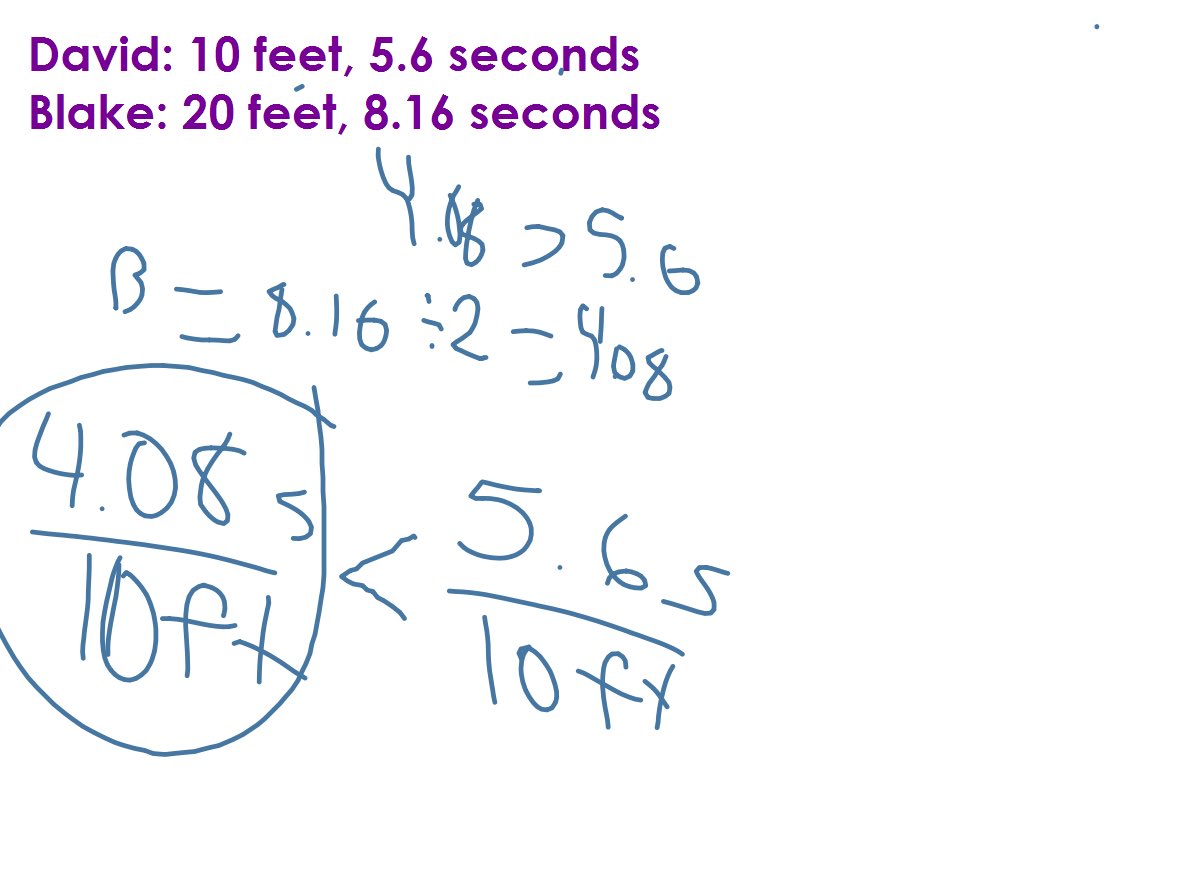 David: 10 feet, 5.6 seconds
Blake: 20 feet, 8.16 seconds
4.08 > 5.6
B = 8.16 ÷ 2 = 408
4.08 s
10 ft
<
5.6 s
10 ft